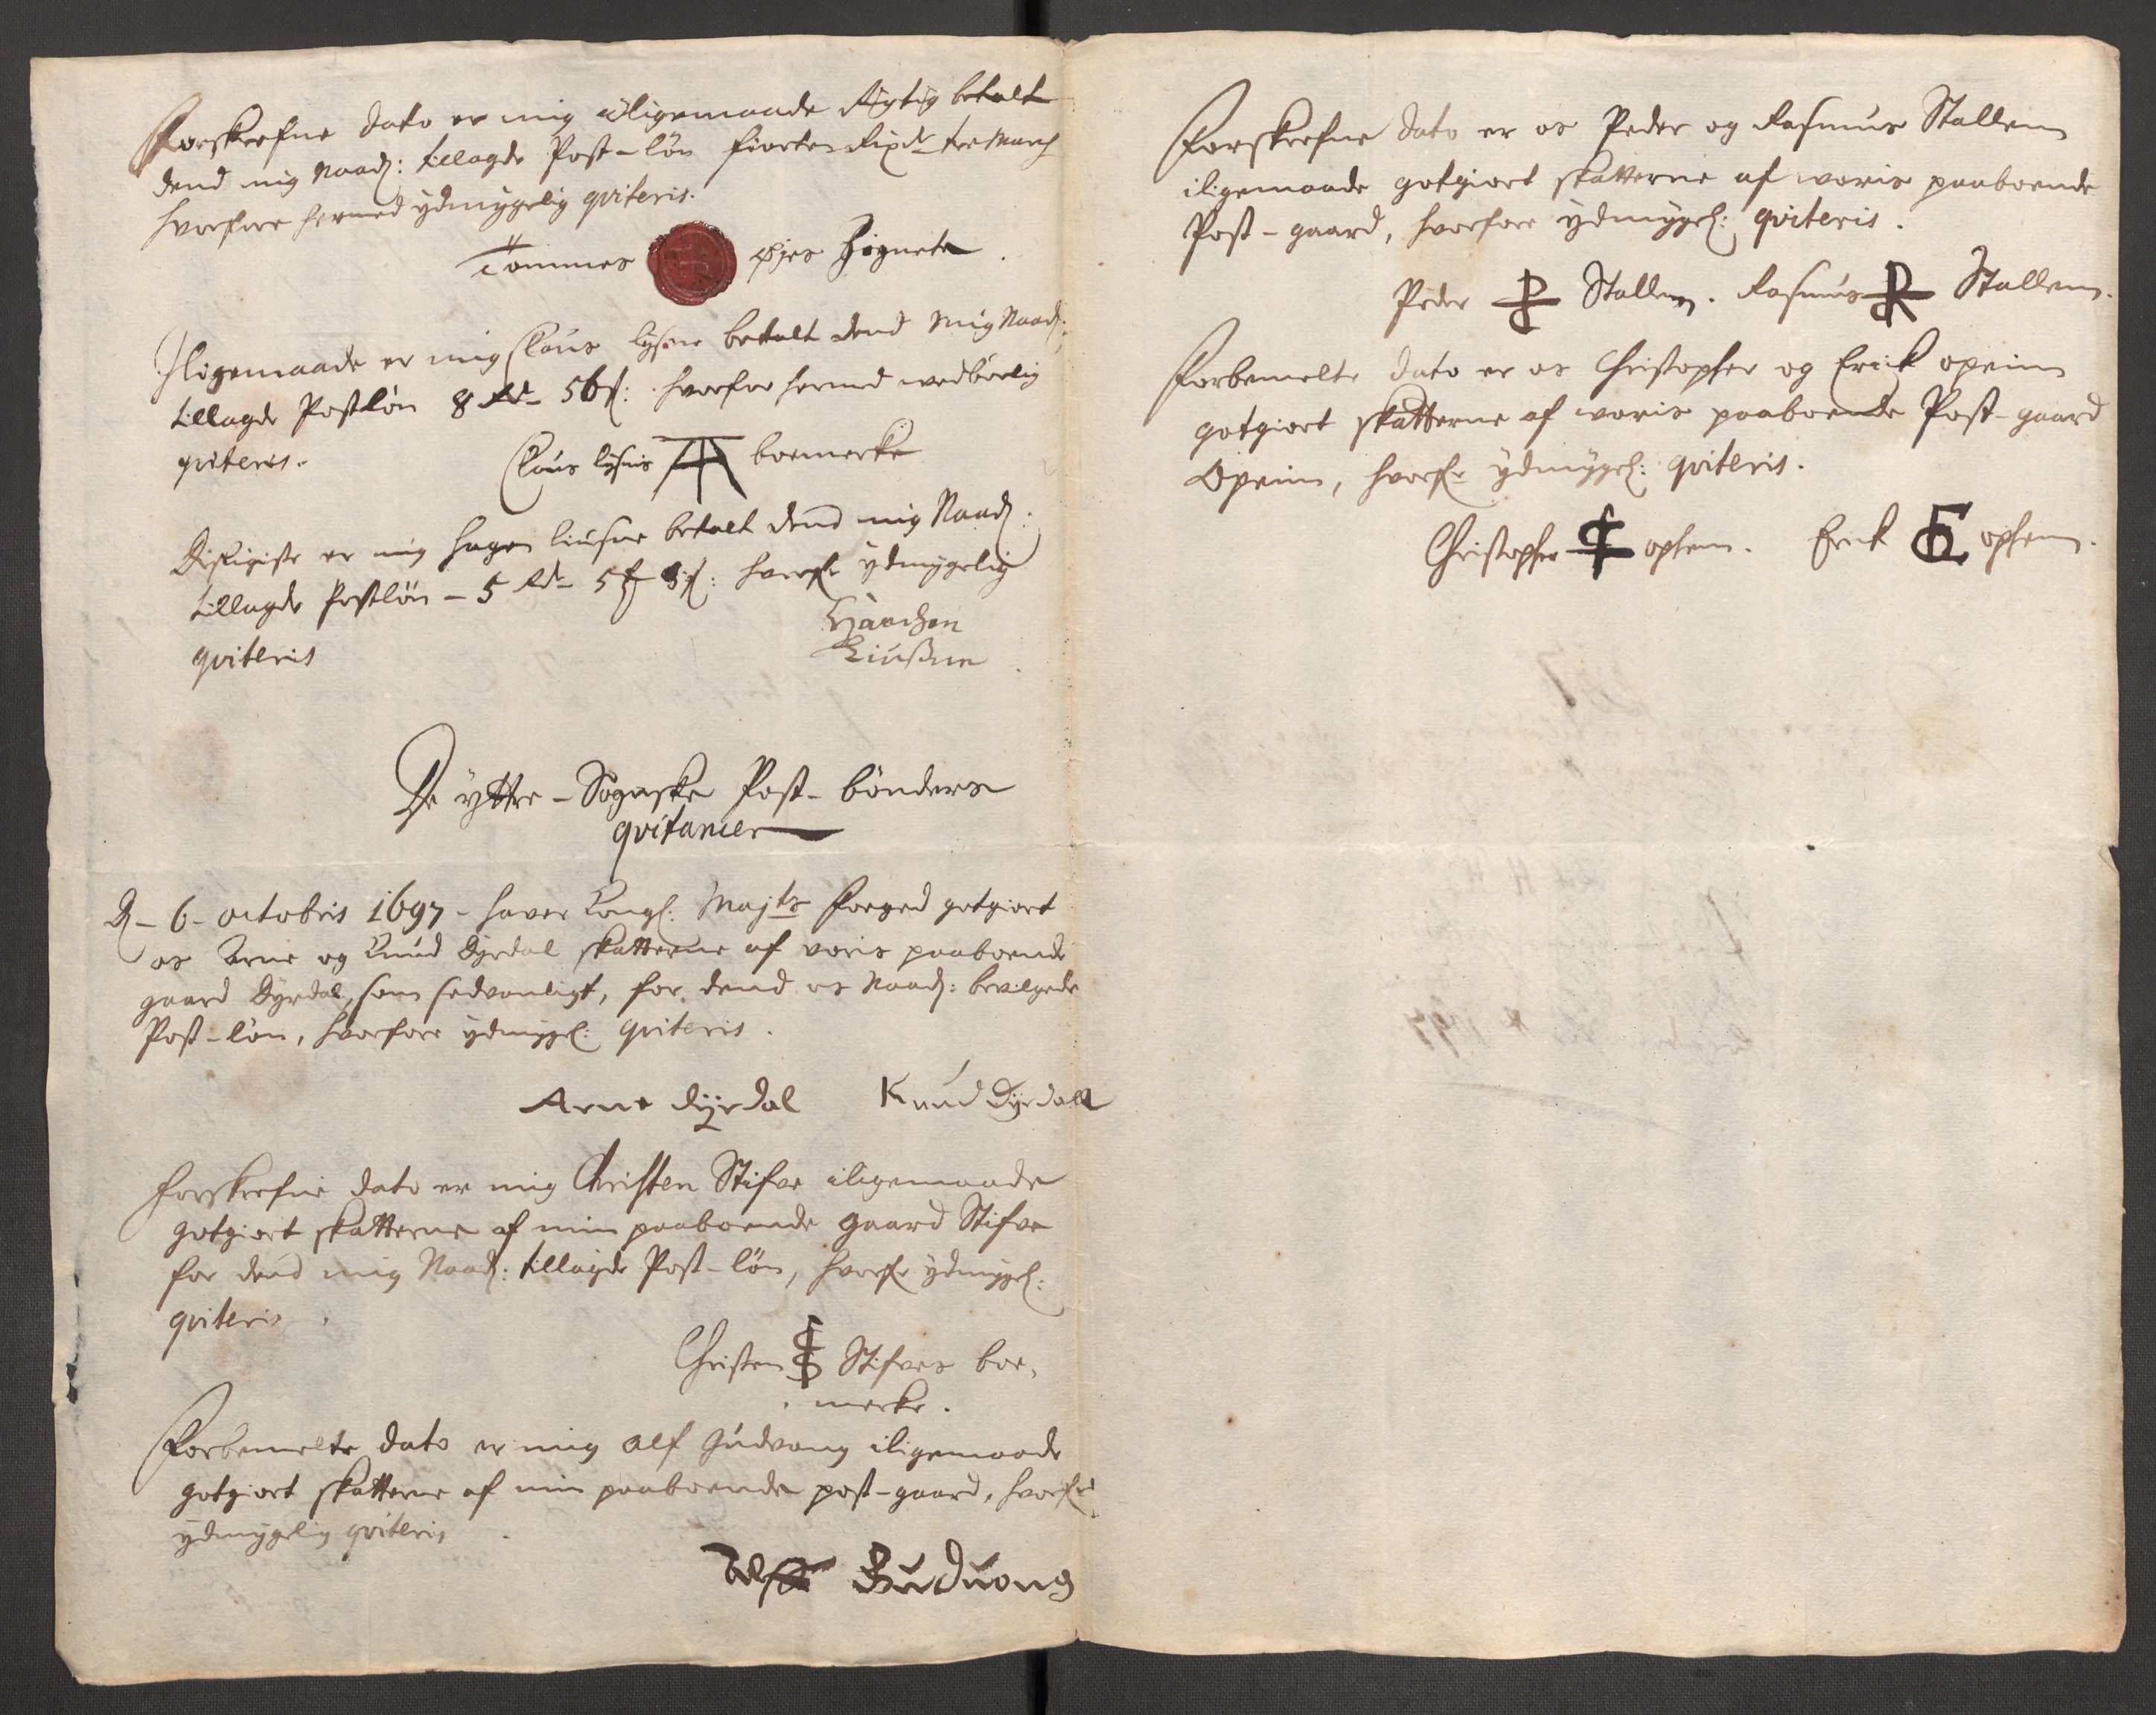 Forskrefne dato er mig iligemaade Rigtig betalt
dend mig Naad: tillagde Post-lön fiorten Rixdr tre March
hvorfore hermed ydmygelig qviteris.
Tommes øjes Zignete.
Iligemaade er mig Clous lysne betalt dend mig Naad:
tillagde Postlön 8 Rdr 56 s: hvorfor hermed wedbörlig
qviteris.
Clous lysnis boemerke
Disligiste er mig Hagen liusne betalt dend mig Naad:
tillagde Postlön - 5 Rdr 5 s: hvorfr ydmygelig
qviteris
Haachen
Liusne
De yttre-Sognske Post-bönders
qvitancier
D - 6 - octobris 1697 - haver Kongl: Majts foeged gotgiort
os Arne og Knud Dyrdal skatterne af voris paaboende
gaard Dyrdal, som sedvanligt, for dend os Naad: bevilgede
Post-lön, hvorfore ydmygel: qviteris.
Arne dyrdal Knud Dyrdall
Forskrefne dato er mig Christen Stifve iligemaade
gotgiort skatterne af min paaboende gaard Stifve
for dend mig Naad: tillagde Post-lön, hvorfr ydmygel:
qviteris.
Christen CS Stifves boe,
merke.
Forbemelte dato er mig Alf Gudvang iligemaade
gotgiort skatterne af min paaboende post-gaard, hvorfre
ydmygelig qviteris
Alf Guduong
Forskrefne dato er os Peder og Rasmus Stallem
iligemaade gotgiort skatterne af woris paaboende
Post-gaard, hvorfore ydmygel: qviteris.
Peder Stallem. Rasmus R Stallem.
Forbemelte dato er os Christopher og Erick opeim
gotgiort skatterne af woris paaboende Post-gaard
Opeim, hvorfr ydmygel: qviteris.
Christopher ophem. Erick E ophem.